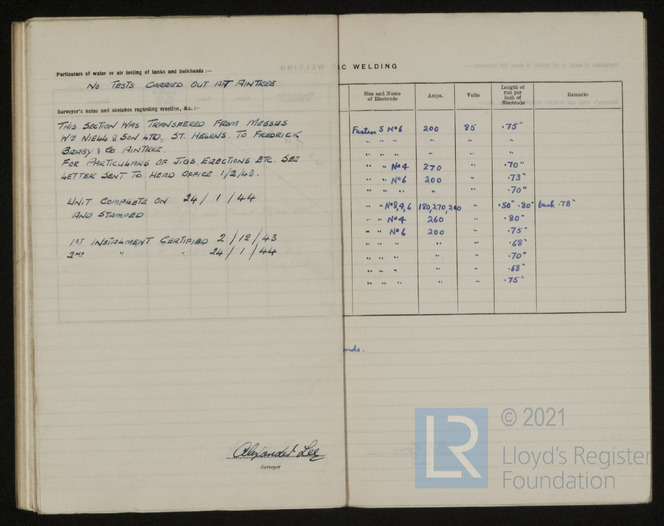 Particulars of water or air testing of tanks and bulkheads :—
NO TESTS CARRIED OUT AT AINTREE
Surveyor's notes and sketches regarding erection, &c. :—
THIS SECTION WAS TRANSFERED FROM MESSRS
WM NIELL & SON LTD, ST. HELENS. TO FREDRICK
BRABY & CO AINTREE.
FOR PARTICULARS OF JIGS, ERECTIONS ETC. SEE
LETTER SENT TO HEAD OFFICE 1/2/43.
UNIT COMPLETE ON 24/1/44
AND STAMPED
1ST INSTALMENT CERTIFIED 2/12/43
2ND " " 24/1/44
Alexander Lee
Surveyor
IC WELDING
Size and Name of Electrode Amps. Volts Length of run per inch of Electrode Remarks
5 No 6 200 80 .75"
" " " " " "
" " " " " "
" " No 4 270 " .70"
" " No 6 200 " .73"
" " " " " .70"
" " No 8,4,6 180,270,200 " .50" .80" .78"
" " No 4 260 " .80"
" " No 6 200 " .75"
" " " " " .68"
" " " " " .70"
" " " " " .68"
" " " " " .75"
nds.
LR
© 2021
Lloyd's Register
Foundation